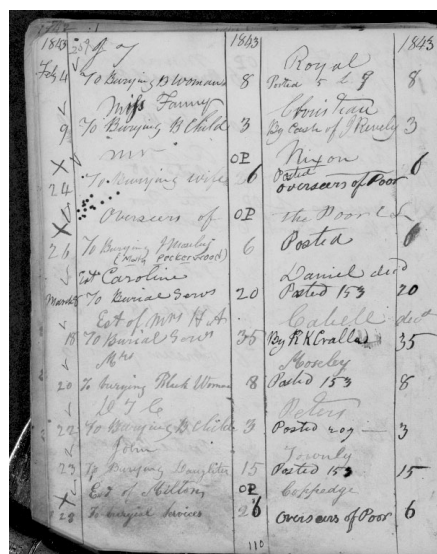 1843 1843 1843
Royal
Feb 4 To Burying B Womans 8 Posted 5 & 9 8
Miss Fanny Christian
9 To Burying B Child 3 By Cash of J 3
Mr OP Nixon
24 To Burying wife 26 Posted Overseers of Poor 6
Overseers of OP the Poor
26 To Burying J 6 Posted 6
Est Caroline Daniel decd
March 3 To Burial Servs 20 Posted 153 20
Est of Mrs H A Cabell decd
18 To Burial Servs 35 By R K Cralle 35
Mrs Moseley
20 To burying Black Woman 8 Posted 153 8
Peters
22 To Burying B Child 3 Posted 209 3
John Townly
23 To Burying Daughter 15 Posted 153 15
Est of Milton OP Coppedge
28 To burying Services 26 Overseers of Poor 6
110